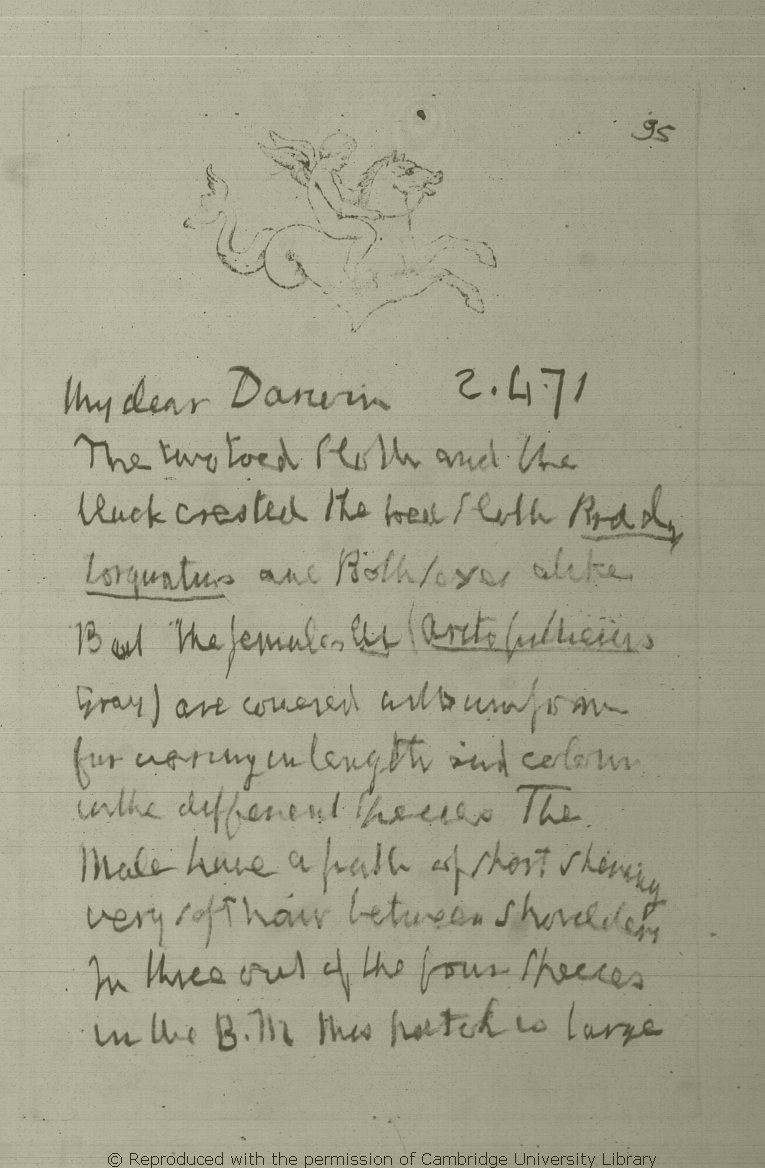 95
My dear Darwin 2.4.71
The two toed Sloth and the
black crested the toed Sloth
torquatus are Both sexes alike
But the females (Arctopithecus
Gray) are covered with uniform
fur varying in length and colour
in the different Species The
Male have a path of short shining
very soft hair between shoulders
In three out of the four Species
in the B.M this patch is large
© Reproduced with the permission of Cambridge University Library